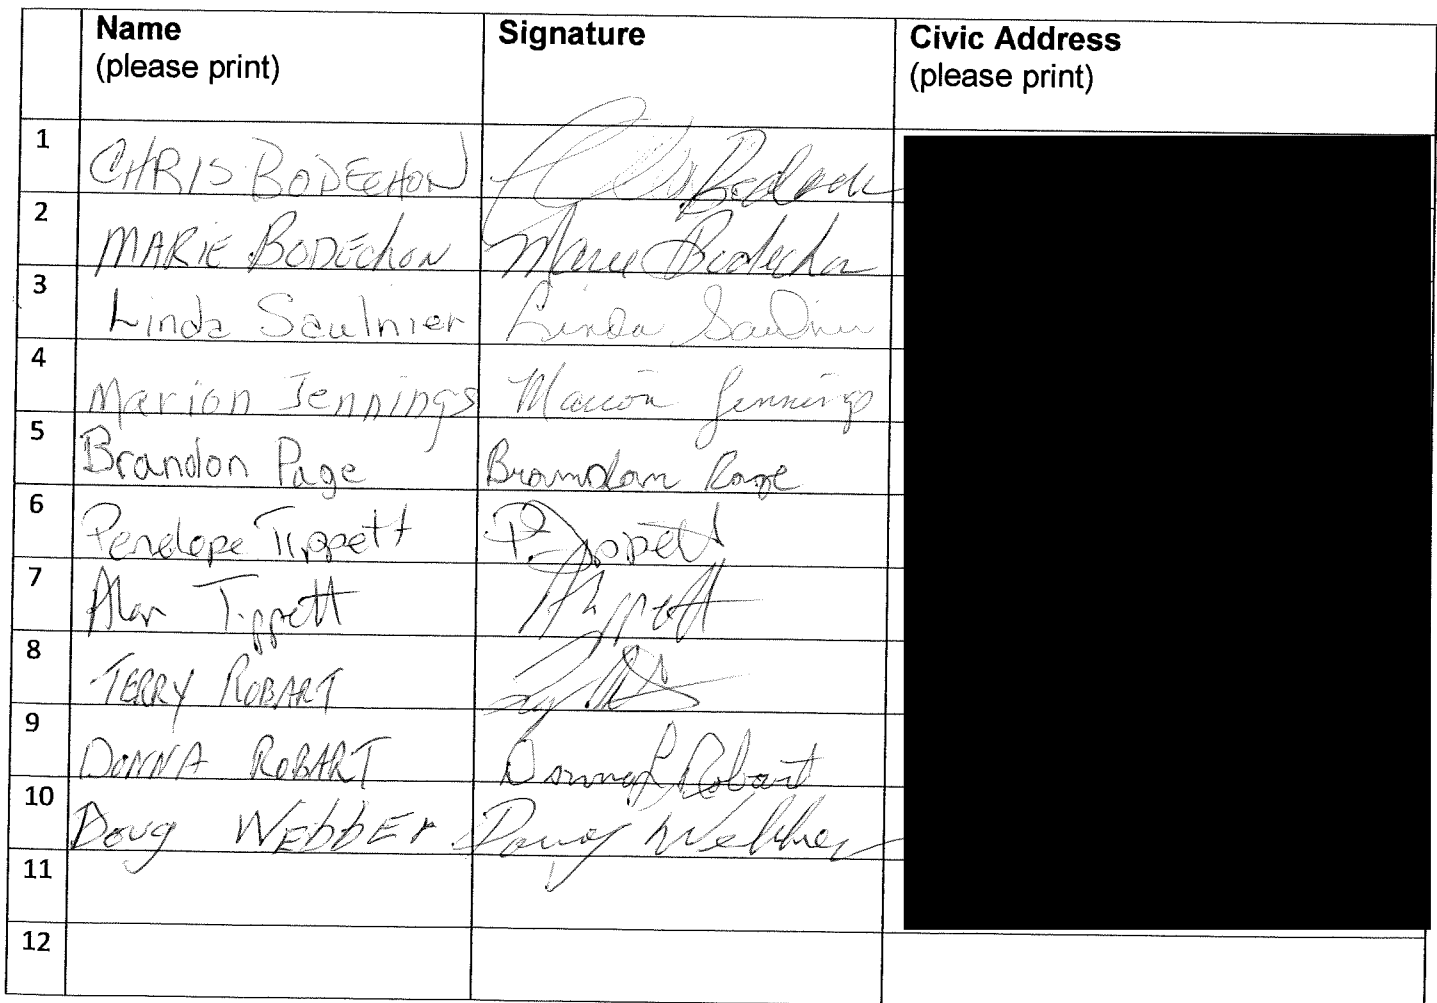 Name Signature Civic Address
(please print) (please print)
1 CHRIS BODECHON
2 MARIE BODECHON Marie Bodechon
3 Linda Saulnier Linda Saulnier
4 Marion Jennings Marion Jennings
5 Brandon Page Brandon Page
6 Penelope Tippett P. Tippett
7 Alan Tippett
8 TERRY ROBART
9 DONNA ROBART Donna L Robart
10 Doug WEBBER Doug Webber
11
12